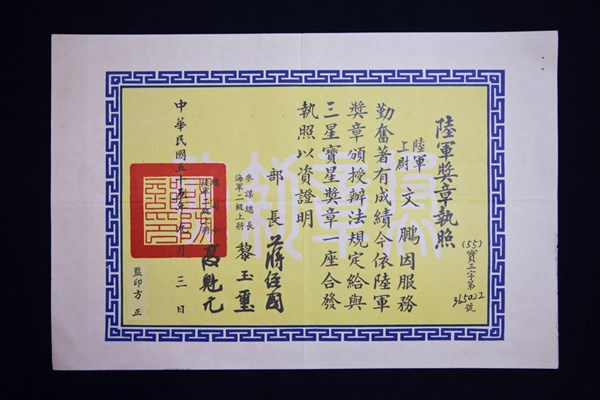 陸軍獎章執照
(55)寶三字第
365022
號
陸軍
上尉
文鵬因服務
勤奮著有成績今依陸軍
獎章頒授辦法規定給與
三星寶星獎章一座合發
執照以資證明
部長 蔣經國
參謀總長
海軍二級上將
黎玉璽
總司令
陸軍二級上將
高魁元
中華民國五十五年九月三日
監印方正